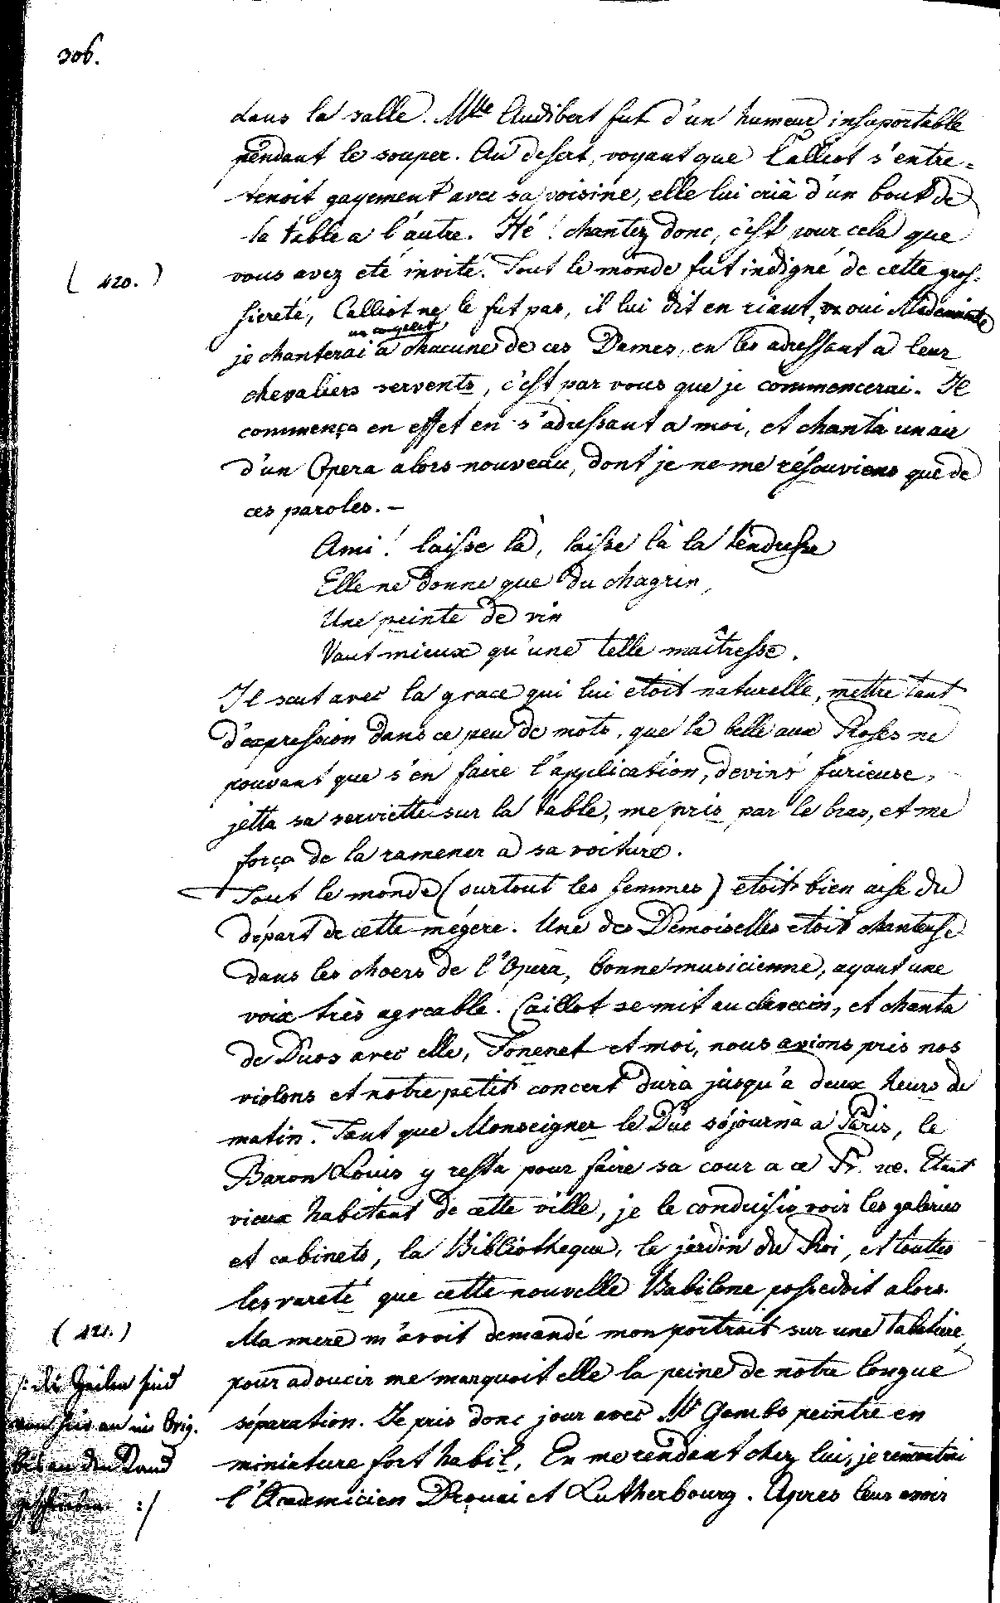 306.
dans la salle. Mlle Audibert fut d'un humeur insuportable
pendant le souper. Au desert, voyant que Calliot s'entre=
tenoit gayement avec sa voisine, elle lui cria d'un bout de
la table a l'autre. Hé! chantez donc, c'est pour cela que
( 420. )
vous avez eté invité. Tout le monde fut indigné de cette gros-
siereté, Calliot ne le fut pas, il lui dit en riant, oui Mademoiselle
je chanterai a chacune de ces Dames, en les adressant a leur
chevaliers servents, c'est par vous que je commencerai. Il
commença en effet en s'adressant a moi, et chanta un air
d'un Opera alors nouveau, dont je ne me résouviens que de
ces paroles. –
Ami! laisse là, laisse là la tendresse
Elle ne donne que du chagrin,
Une peinte de vin
Vaut mieux qu'une telle maîtresse.
Il scut avec la grace qui lui etoit naturelle, mettre tant
d'expression dans ce peu de mots, que la belle aux Roses ne
pouvant que s'en faire l'application, devint furieuse,
jetta sa serviette sur la table, me pris par le bras, et me
força de la ramener a sa voiture.
Tout le monde (surtout les femmes) etoit bien aise du
départ de cette mégere. Une des Demoiselles etoit chanteuse
dans les choers de l'Opera, bonne musicienne, ayant une
voix très agreable. Caillot se mit au clavecin, et chanta
de Duos avec elle, Fonenet et moi, nous avions pris nos
violons et notre petit concert dura jusqu'a deux heurs de
matin. Tant que Monseigner le Duc séjourna a Paris, le
Baron Louis y resta pour faire sa cour a ce Pr. ce. Etant
vieux habitant de cette ville, je le conduisis voir les galeries
et cabinets, la Bibliotheque, le jardin du Roi, et touttes
les rareté que cette nouvelle Babilone possedoit alors.
( 421. )
Ma mere m'avoit demandé mon portrait sur une tabatiere,
/: die Zeilen sind
pour adoucir me marquoit elle la peine de notre longue
von hier an im Orig.
séparation. Je pris donc jour avec Mr Gambs peintre en
bis an den Rand
miniature fort habil. En me rendant chez lui, je rencontrai
geschrieben :/
l'Academicien Drouai et Lutherbourg. Apres leur avoir